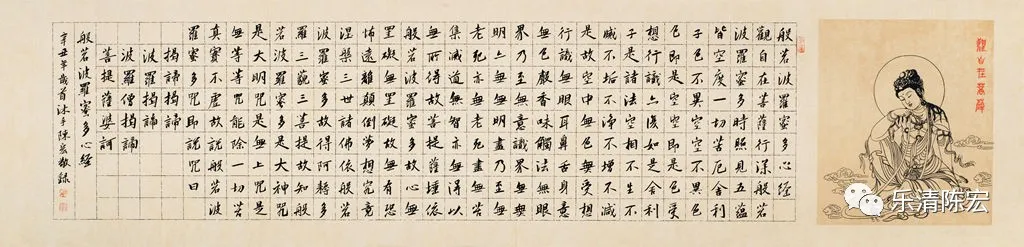 觀自在菩薩
般若波羅蜜多心經
觀自在菩薩行深般若
波羅蜜多時照見五蘊
皆空度一切苦厄舍利
子色不異空空不異色
色即是空空即是色受
想行識亦復如是舍利
子是諸法空相不生不
滅不垢不淨不增不減
是故空中無色無受想
行識無眼耳鼻舌身意
無色聲香味觸法無眼
界乃至無意識界無無
明亦無無明盡乃至無
老死亦無老死盡無苦
集滅道無智亦無得以
無所得故菩提薩埵依
般若波羅蜜多故心無
罣礙無罣礙故無有恐
怖遠離顛倒夢想究竟
涅槃三世諸佛依般若
波羅蜜多故得阿耨多
羅三藐三菩提故知般
若波羅蜜多是大神咒
是大明咒是無上咒是
無等等咒能除一切苦
真實不虛故說般若波
羅蜜多咒即說咒曰
揭諦揭諦
波羅揭諦
波羅僧揭諦
菩提薩婆訶
般若波羅蜜多心經
辛丑年歲首沐手陳宏敬錄
乐清陈宏